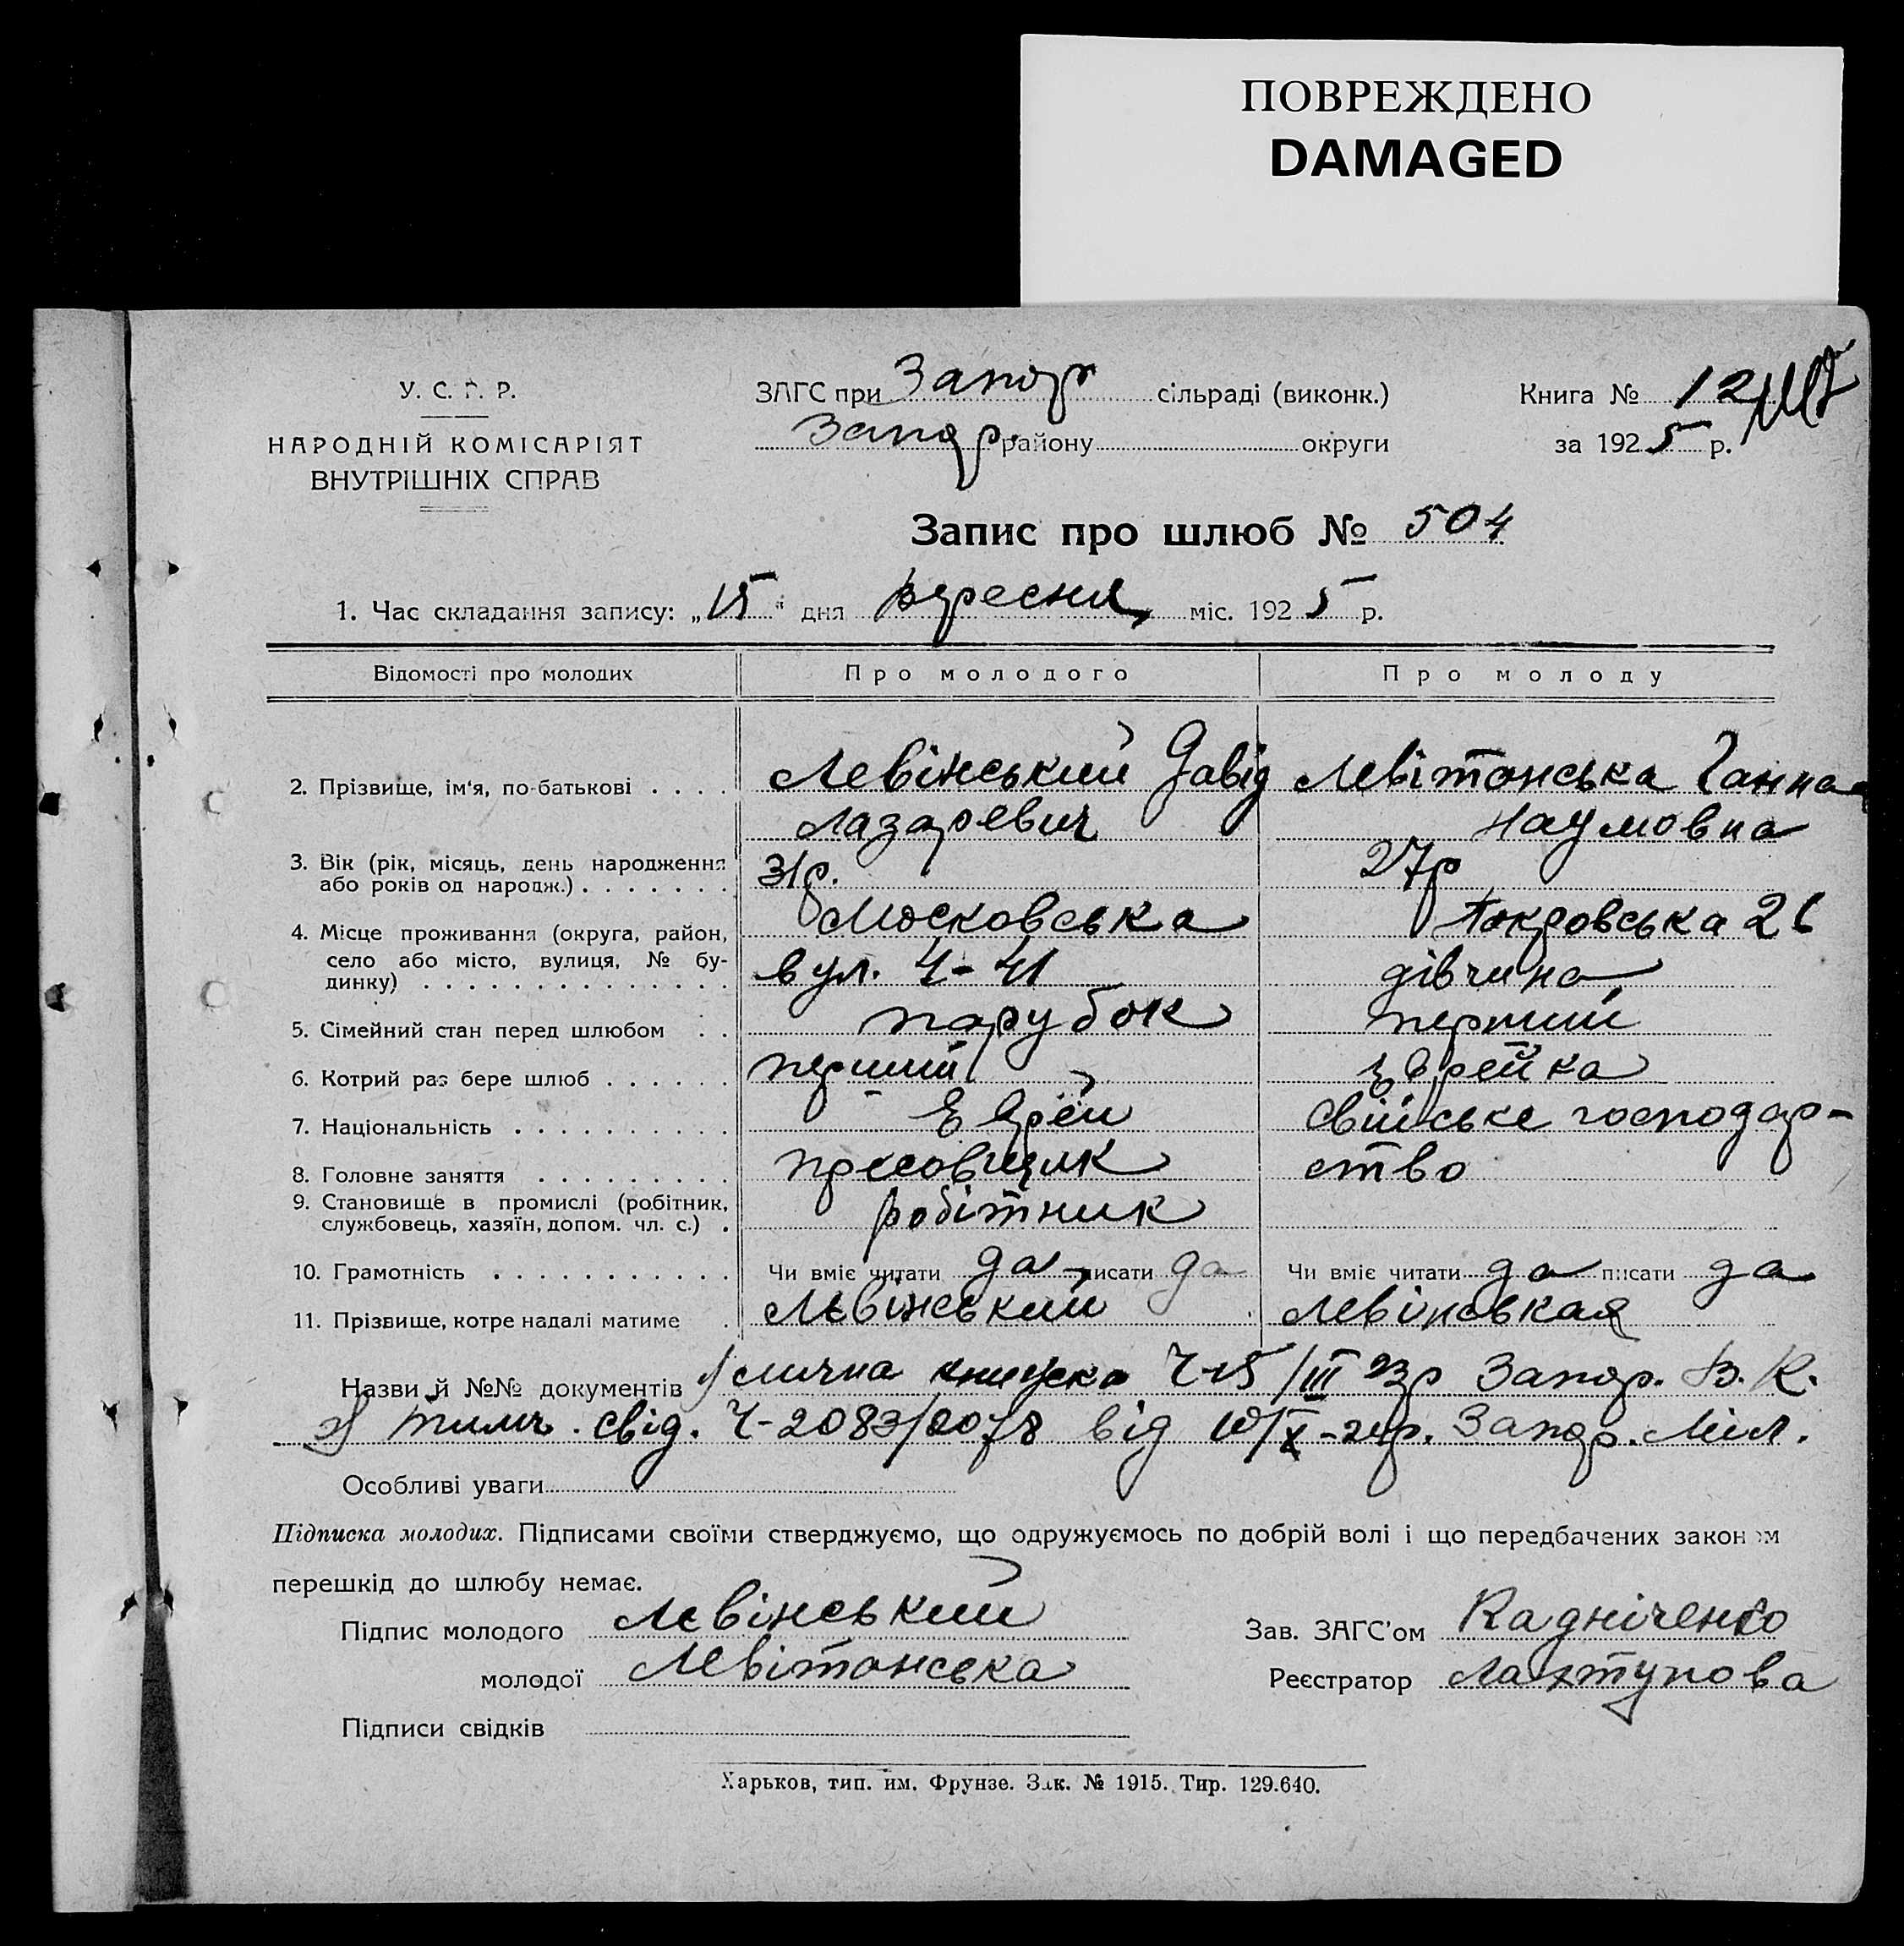 ПОВРЕЖДЕНО
DAMAGED
У. С. Р. Р.
НАРОДНІЙ КОМІСАРІЯТ
ВНУТРІШНІХ СПРАВ
ЗАГС при Запор сільраді (виконк.)
Запор. району округи
Книга № 12
за 1925 р.
Запис про шлюб № 504
1. Час складання запису: „15“ дня вересня міс. 1925 р.
Відомості про молодих Про молодого Про молоду
2. Прізвище, ім'я, по-батькові . . . . Левінський Давід Левітонська Ганна
Лазаревич Наумовна
3. Вік (рік, місяць, день народження
або років од народж.) . . . . . . . 31р. 27р
4. Місце проживання (округа, район,
село або місто, вулиця, № бу-
динку) . . . . . . . . . . . . . .
Московська
вул. 4-41
Покровська 26
5. Сімейний стан перед шлюбом . . парубок дівчина
6. Котрий раз бере шлюб . . . . . . перший перший
7. Національність . . . . . . . . . . Еврей еврейка
8. Головне заняття . . . . . . . . . пресовщик свійське господар-
ство
9. Становище в промислі (робітник,
службовець, хазяїн, допом. чл. с.) . робітник
10. Грамотність . . . . . . . . . . . Чи вміє читати да писати да Чи вміє читати да писати да
11. Прізвище, котре надалі матиме . Левінський Левінская
Назви й №№ документів 1) книжка Ч-15/III 23р Запор. В. К.
2) тимч. свід. Ч-2083/ від Запор. Міл.
Особливі уваги
Підписка молодих. Підписами своїми стверджуємо, що одружуємось по добрій волі і що передбачених законом
перешкід до шлюбу немає.
Підпис молодого Левінський
молодої Левітонська
Підписи свідків
Зав. ЗАГС'ом Кадніченко
Реєстратор Лахтунова
Харьков, тип. им. Фрунзе. Зак. № 1915. Тир. 129.640.